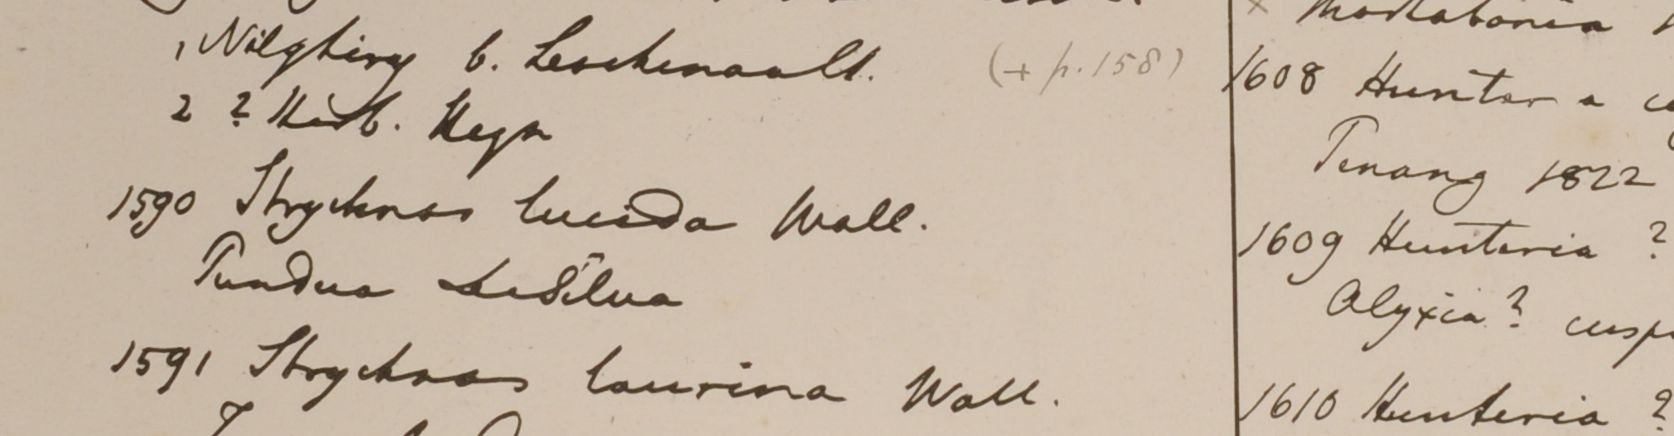 1 Nilghiry b. Leschenault. (+ p. 158)
2 ? Herb. Heyn
1590 Strychnos lucida Wall.
Pundua De Silva
1591 Strychnos laurina Wall.
1608 Hunteria
Penang 1822
1609 Hunteria ?
Alyxia ?
1610 Hunteria ?